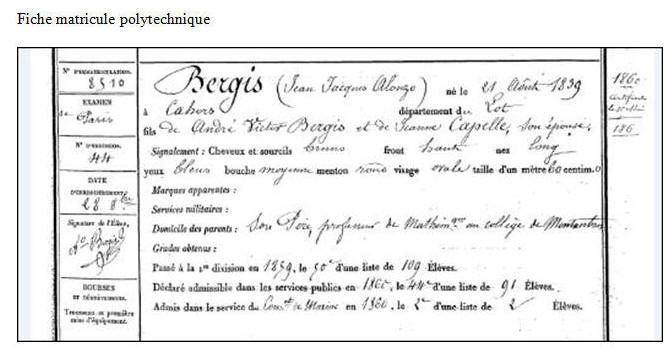 Fiche matricule polytechnique
N° D'IMMATRICULATION.
8510
EXAMEN
de Paris
N° D'ADMISSION.
44
DATE
D'ENREGISTREMENT.
28 8bre
Signature de l'Élève,
BOURSES
ET DÉGRÈVEMENTS.
Trousseau et première
mise d'équipement.
Bergis (Jean Jacques Alonzo) né le 21 Août 1839
à Cahors département du Lot
fils de André Victor Bergis et de Jeanne Capelle, son épouse,
Signalement : Cheveux et sourcils bruns front haut nez long
yeux bleus bouche moyenne menton rond visage ovale taille d'un mètre 60 centim.
Marques apparentes :
Services militaires :
Domicile des parents : Son Père, professeur de Mathém.ques au collège de Montauban
Grades obtenus :
Passé à la 1re division en 1859, le 50e d'une liste de 109 Élèves.
Déclaré admissible dans les services publics en 1860, le 44e d'une liste de 91 Élèves.
Admis dans le service du de Marine en 1860, le 2e d'une liste de 2 Élèves.
1860
186